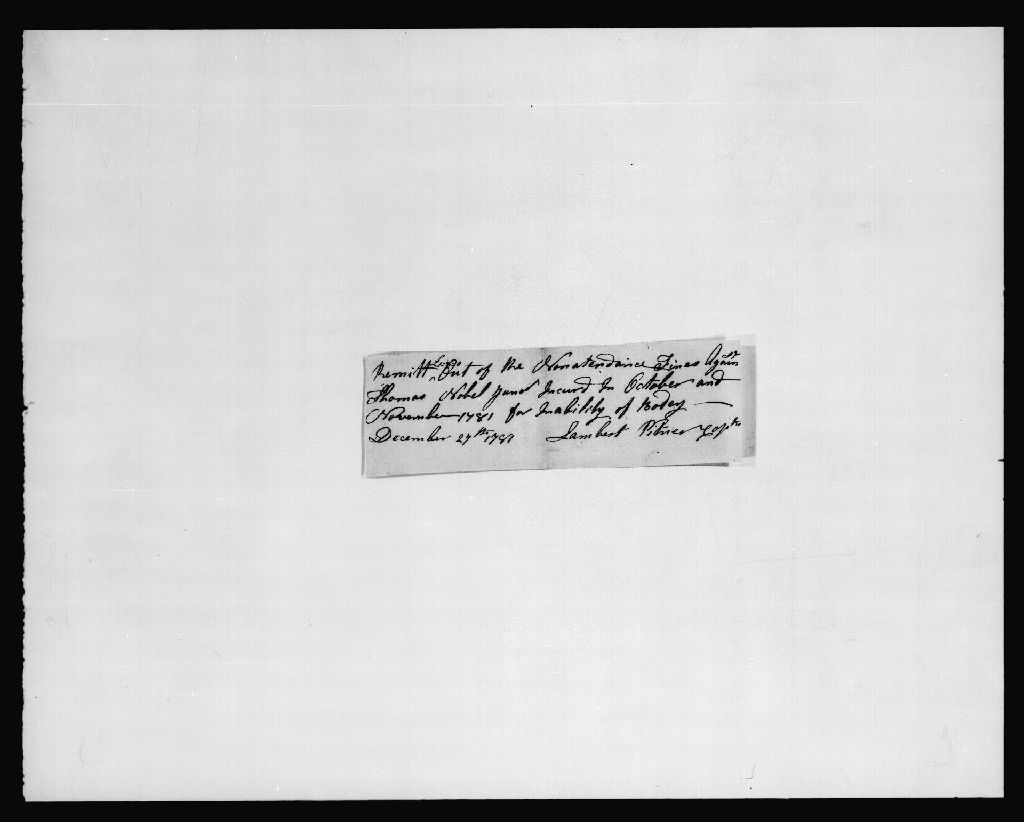 Remitt Out of the Nonatendance Fines Against
Thomas Nobel Junor Incurd In October and
November 1781 for Inability of Bodey —
December 27th 1781 Lambert